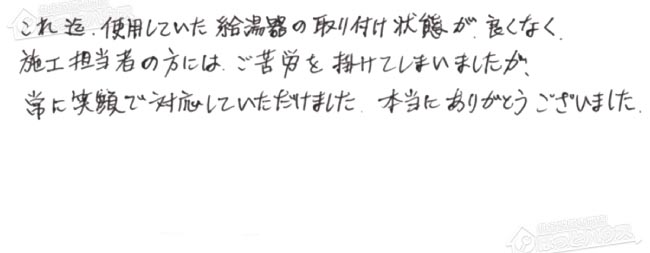 これ迄、使用していた給湯器の取り付け状態が良くなく、
施工担当者の方には、ご苦労を掛けてしまいましたが、
常に笑顔で対応していただけました。本当にありがとうございました。